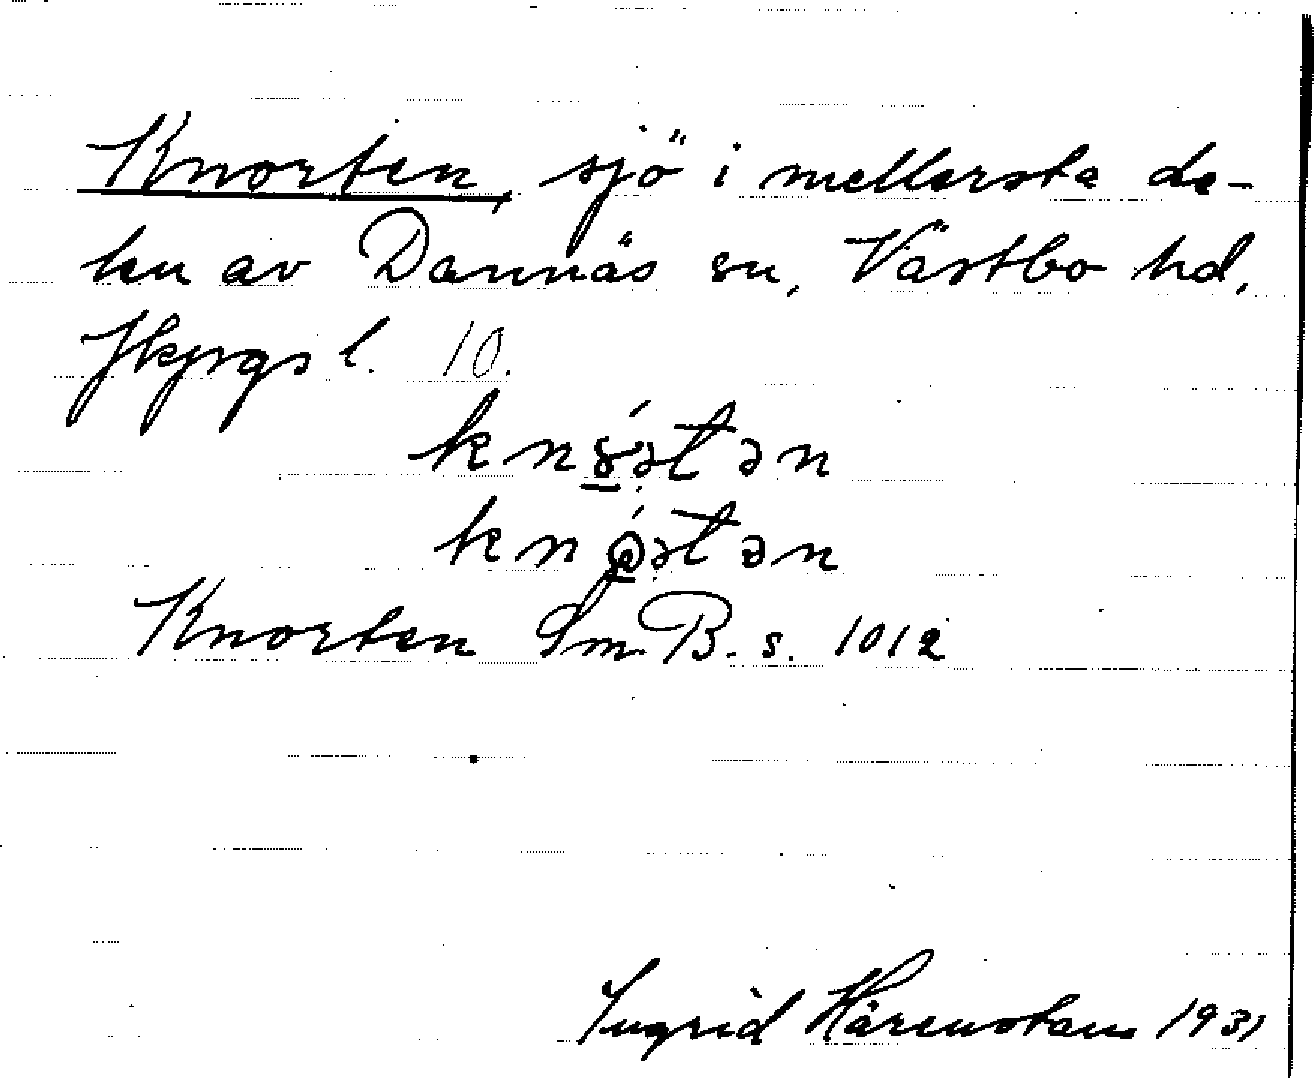 Knorten, sjö i mellersta de-
len av Dannäs sn, Västbo hd,
Jkpgs l. 10.
Knorten Sm. B. s. 1012
Ingrid Härenstam 1931